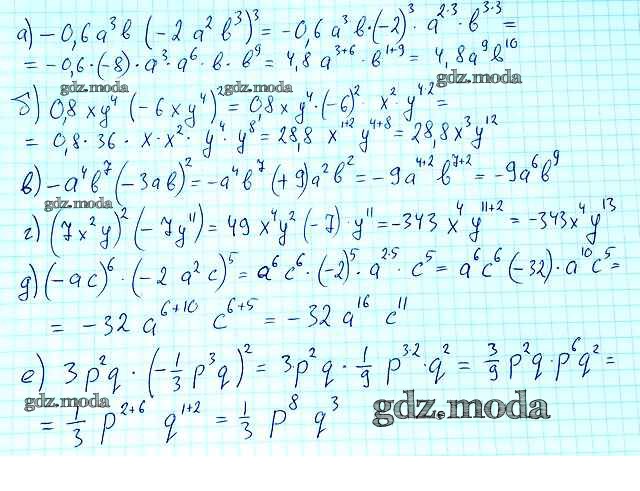 а) − 0,6 a³b (−2 a² b³)³ = −0,6 a³ b·(−2)³ · a²·³ · b³·³ =
= −0,6·(−8)· a³· a⁶ · b · b⁹ = 4,8 a³⁺⁶ · b¹⁺⁹ = 4,8a⁹b¹⁰
gdz.moda gdz.moda gdz.moda
б) 0,8 x y⁴ (−6 x y⁴)² = 0,8 x y⁴·(−6)² · x² · y⁴·² =
= 0,8 · 36 · x · x² · y⁴ · y⁸ = 28,8 x¹⁺² y⁴⁺⁸ = 28,8x³y¹²
в) −a⁴b⁷ (−3ab)² = −a⁴b⁷ (+9)a²b² = −9a⁴⁺² b⁷⁺² = −9a⁶b⁹
gdz.moda
г) (7x²y)² (−7y¹¹) = 49 x⁴y² (−7) · y¹¹ = −343 x⁴ y¹¹⁺² = −343x⁴y¹³
д) (−ac)⁶ · (−2 a² c)⁵ = a⁶c⁶ · (−2)⁵ · a²·⁵ · c⁵ = a⁶c⁶ (−32)·a¹⁰c⁵ =
= −32 a⁶⁺¹⁰ c⁶⁺⁵ = −32 a¹⁶ c¹¹
е) 3p²q · (−1/3 p³q)² = 3p²q · 1/9 p³·²·q² = 3/9 p²q·p⁶q² =
gdz.moda gdz.moda
= 1/3 p²⁺⁶ q¹⁺² = 1/3 p⁸ q³